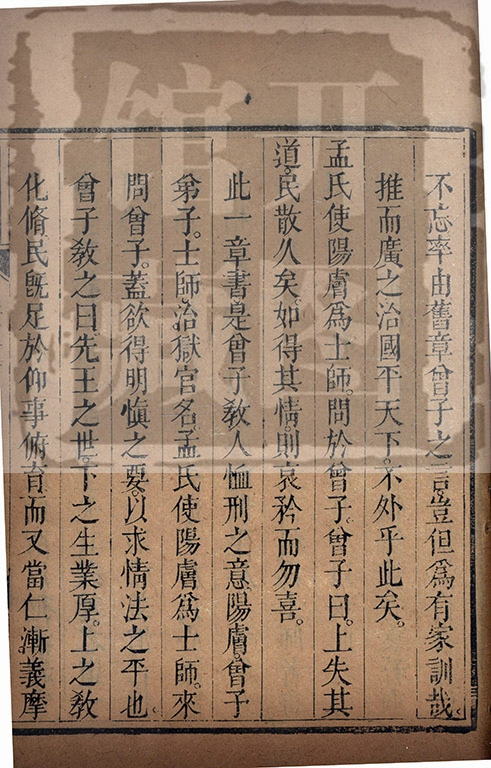 不忘率由舊章曾子之言豈但爲有家訓哉
推而廣之治國平天下不外乎此矣。
孟氏使陽膚爲士師。問於曾子。曾子曰。上失其
道。民散久矣。如得其情。則哀矜而勿喜。
此一章書是曾子敎人恤刑之意陽膚。曾子
弟子。士師。治獄官名。孟氏使陽膚爲士師。來
問曾子。蓋欲得明愼之要。以求情法之平也
曾子敎之曰。先王之世。下之生業厚。上之敎
化脩民旣足於仰事俯育而又當仁漸義摩